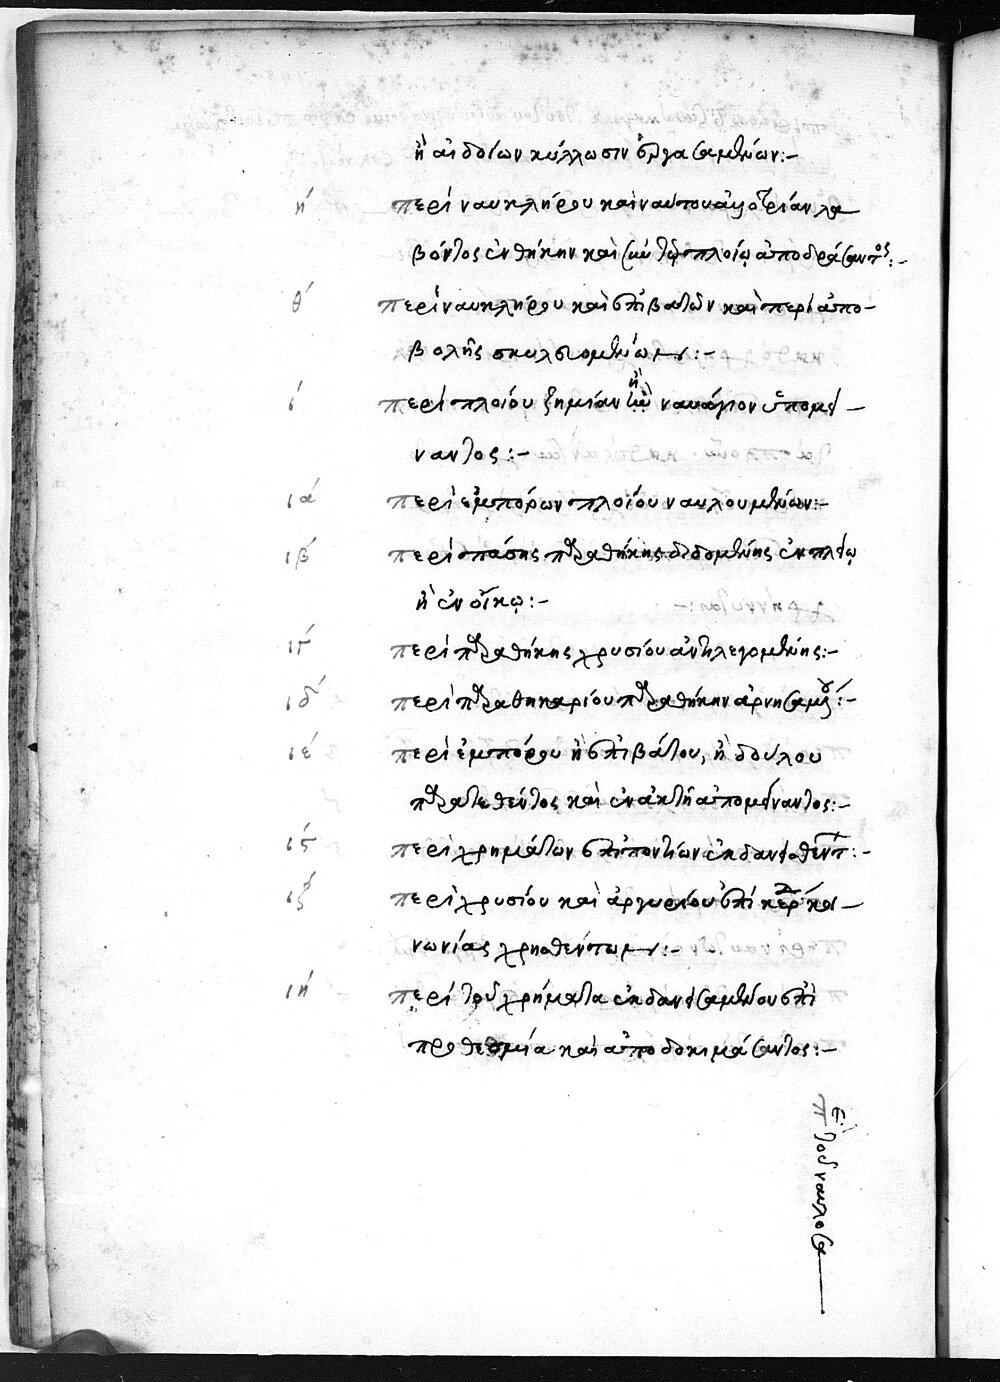 ἢ αἰδοίων κύλλωσιν ἐργασαμένων:–
η΄ περὶ ναυκλήρου καὶ ναύτου ἀλλοτρίαν λα–
βόντος ἐνθήκην καὶ σὺν τῷ πλοίῳ ἀποδράσαντος:–
θ΄ περὶ ναυκλήρου καὶ ἐπιβατῶν καὶ περὶ ἀπο–
βολῆς σκυλευομένων:–
ι΄ περὶ πλοίου ζημίαν ἢ ναυάγιον ὑπομεί–
ναντος:–
ια΄ περὶ ἐμπόρων πλοίου ναυλουμένων:–
ιβ΄ περὶ πάσης παραθήκης διδομένης ἐν πλοίῳ
ἢ ἐν οἴκῳ:–
ιγ΄ περὶ παραθήκης χρυσίου ἀντιλεγομένης:–
ιδ΄ περὶ παραθηκαρίου παραθήκην ἀρνησαμένου:–
ιε΄ περὶ ἐμπόρου ἢ ἐπιβάτου, ἢ δούλου
παρατεθέντος καὶ ἐν ἀκτῇ ἀπομείναντος:–
ιϛ΄ περὶ χρημάτων ἐπιποντίων ἐκδανεισθέντων:–
ιζ΄ περὶ χρυσίου καὶ ἀργυρίου ἐπὶ κερδικοι–
νωνίας χρησθέντων:–
ιη΄ περὶ τοῦ χρήματα ἐκδανεισαμένου ἐπὶ
προθεσμία καὶ ἀποδοκιμάσαντος:–
τοῦ ναυλοσα